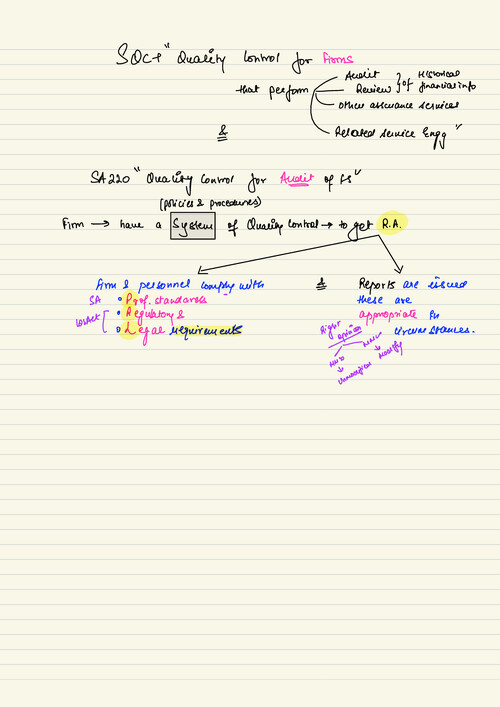 SQC-1 "Quality Control for Firms
that perform Audit Review } of Historical financial info
other assurance services
Related service Engg"
&
SA220 "Quality Control for Audit of FS"
(policies & procedures)
Firm → have a System of Quality Control → to get R.A.
Firm & personnel comply with & Reports are issued
SA • Prof. standards these are
• Regulatory & appropriate in
• Legal requirements circumstances.
Right opinion
NMM MMM
↓ ↓
Unmodified Modify